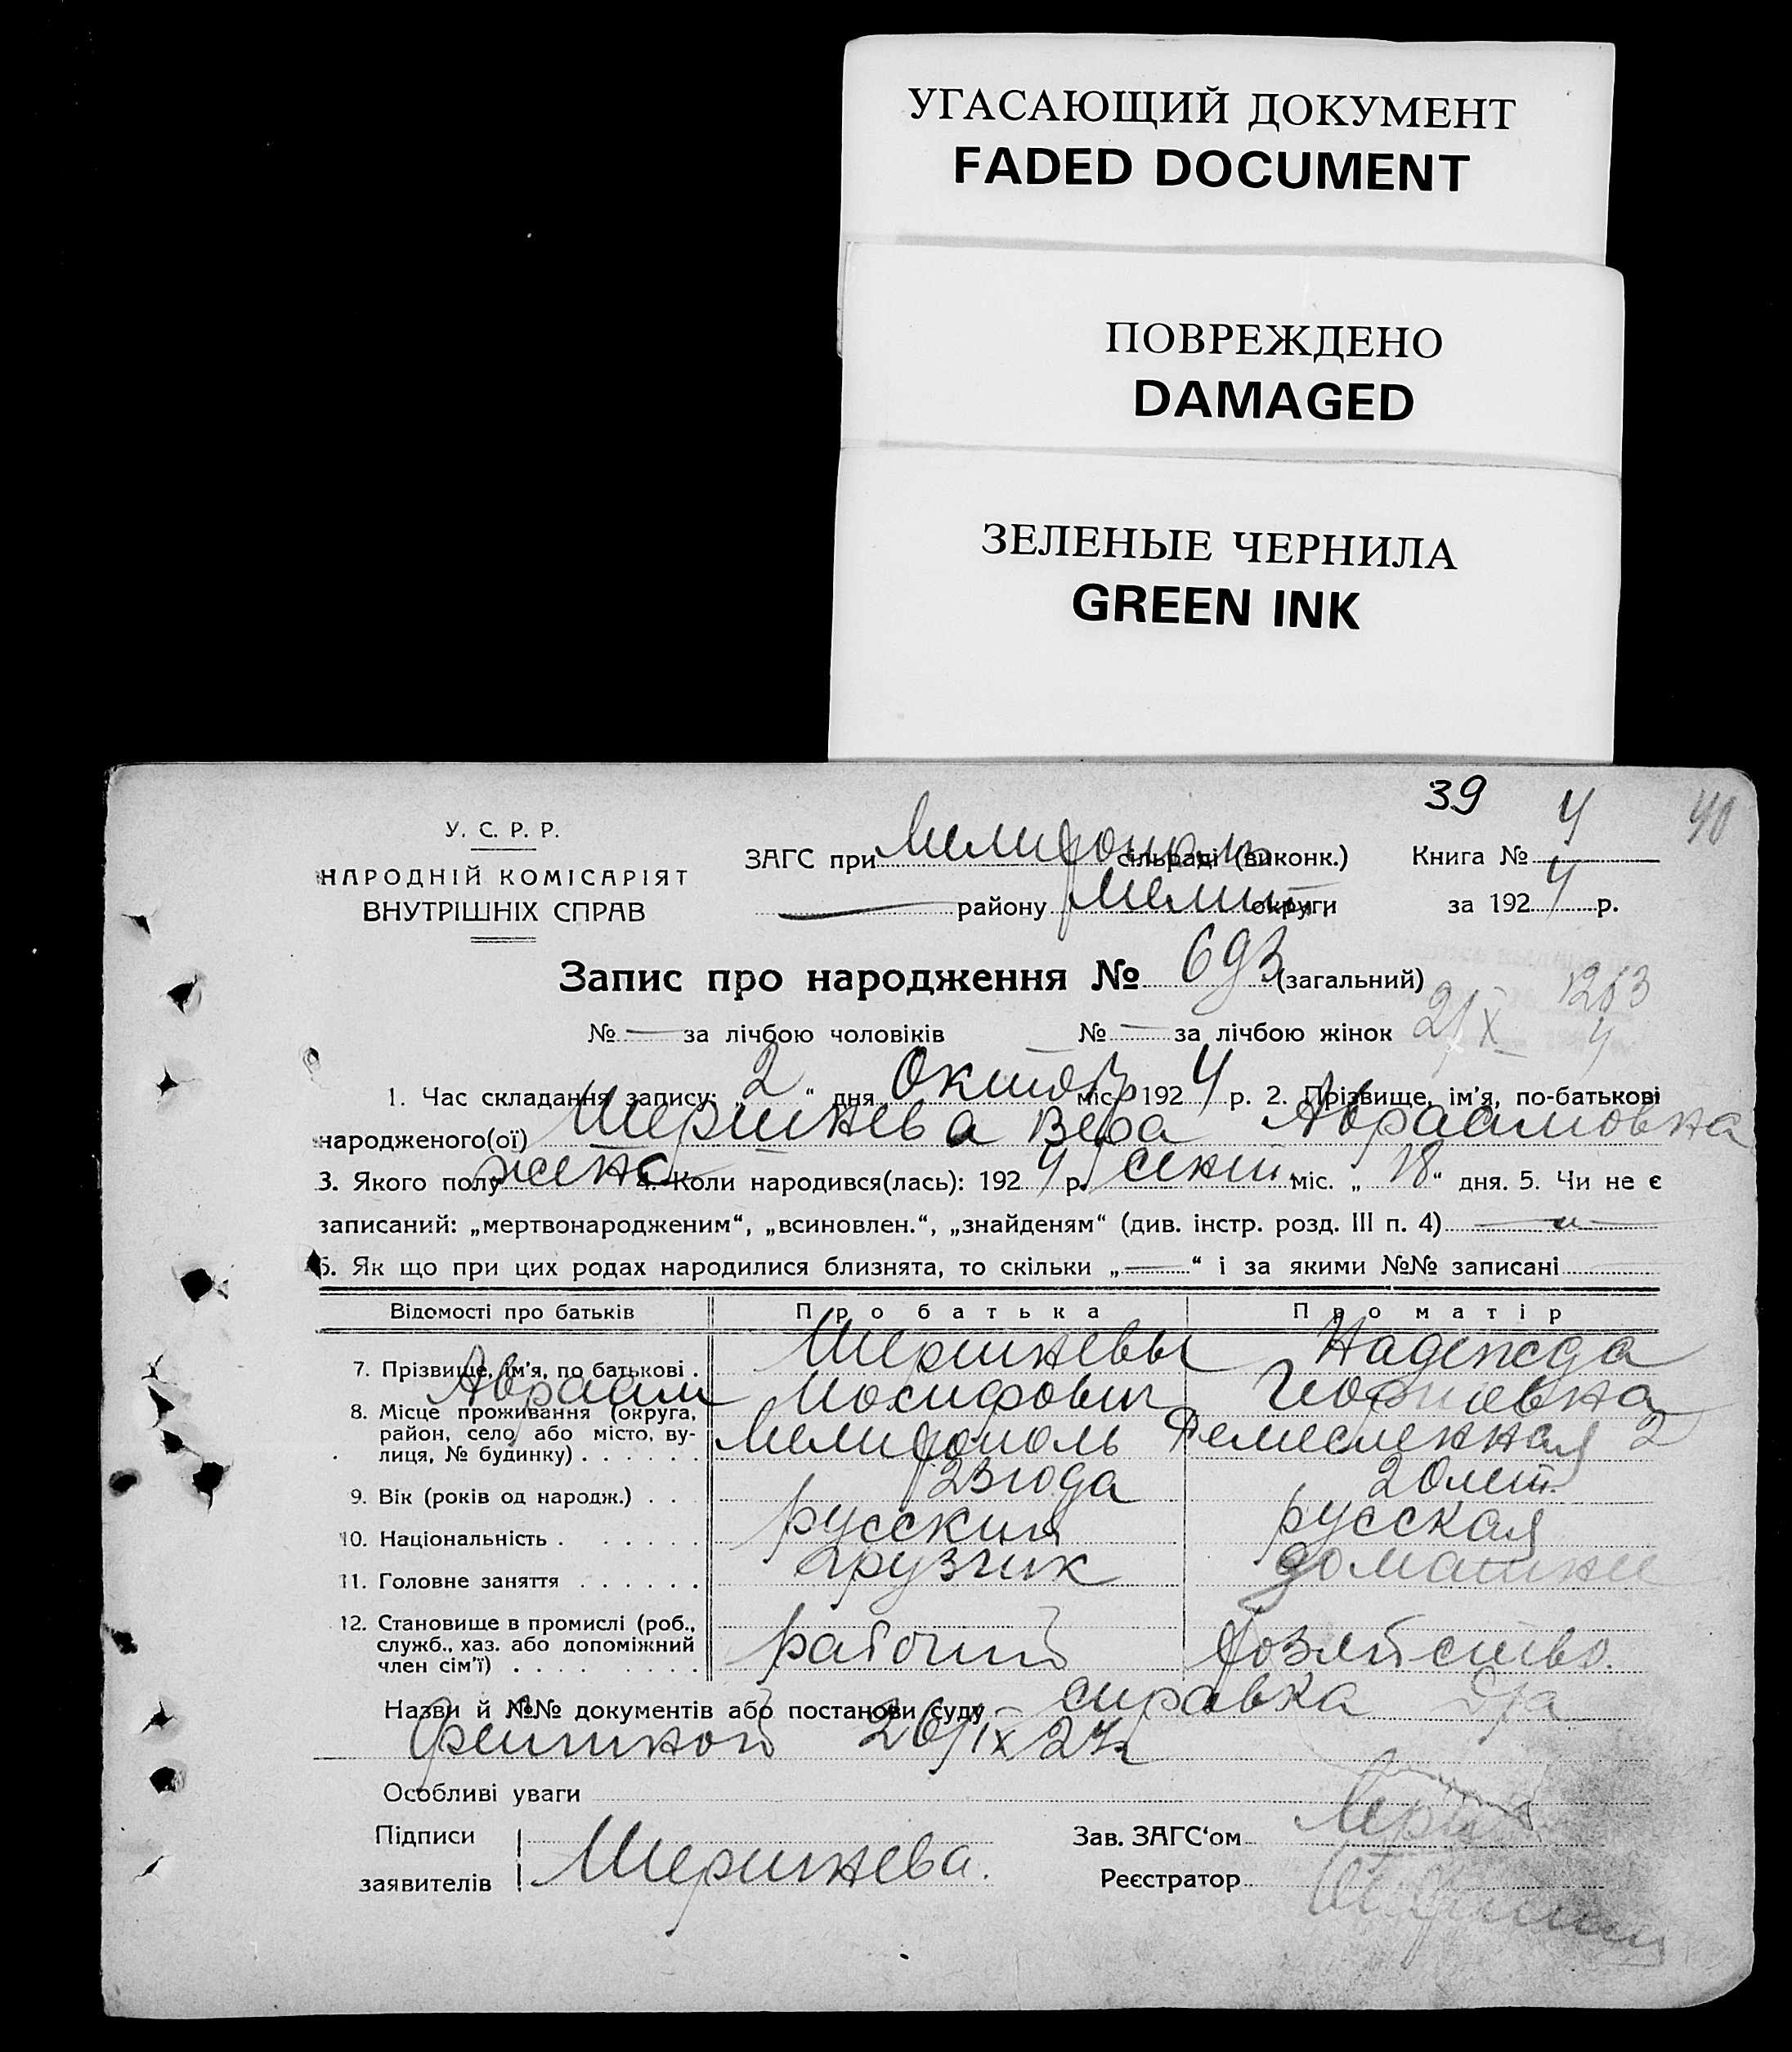 УГАСАЮЩИЙ ДОКУМЕНТ
FADED DOCUMENT
ПОВРЕЖДЕНО
DAMAGED
ЗЕЛЕНЫЕ ЧЕРНИЛА
GREEN INK
39 4 40
У. С. Р. Р.
НАРОДНІЙ КОМІСАРІЯТ
ВНУТРІШНІХ СПРАВ
ЗАГС при Мелитополь сільраді (виконк.) Книга №
району Мелит. округи за 1924 р.
Запис про народження № 693 (загальний)
1263
№ — за лічбою чоловіків № — за лічбою жінок
1. Час складання запису: „ 2 “ дня Октяб міс. 1924 р. 2. Прізвище, ім'я, по-батькові
народженого(ої) Шершнева Вера Авраамовна
3. Якого полу женс 4. Коли народився(лась): 1924 р. сент міс. „ 18 “ дня. 5. Чи не є
записаний: „мертвонародженим“, „всиновлен.“, „знайденям“ (див. інстр. розд. III п. 4)
6. Як що при цих родах народилися близнята, то скільки „—“ і за якими №№ записані
Відомості про батьків Про батька Про матір
7. Прізвище, ім'я, по батькові . Шершневы Надежда
Авраам Иосифович Георгиевна
8. Місце проживання (округа,
район, село або місто, ву-
лиця, № будинку) . . . . . . Мелитополь Ремесленная 2
9. Вік (років од народж.) . . 23 года 20 лет.
10. Національність . . . . . . русский русская
11. Головне заняття . . . . . . грузчик домашнее
12. Становище в промислі (роб.,
служб., хаз. або допоміжний
член сім'ї) . . . . . . . . рабочий хозяйство.
Назви й №№ документів або постанови суду справка
26/IX 24 г
Особливі уваги
Підписи
заявителів Шершнева.
Зав. ЗАГС'ом
Реєстратор